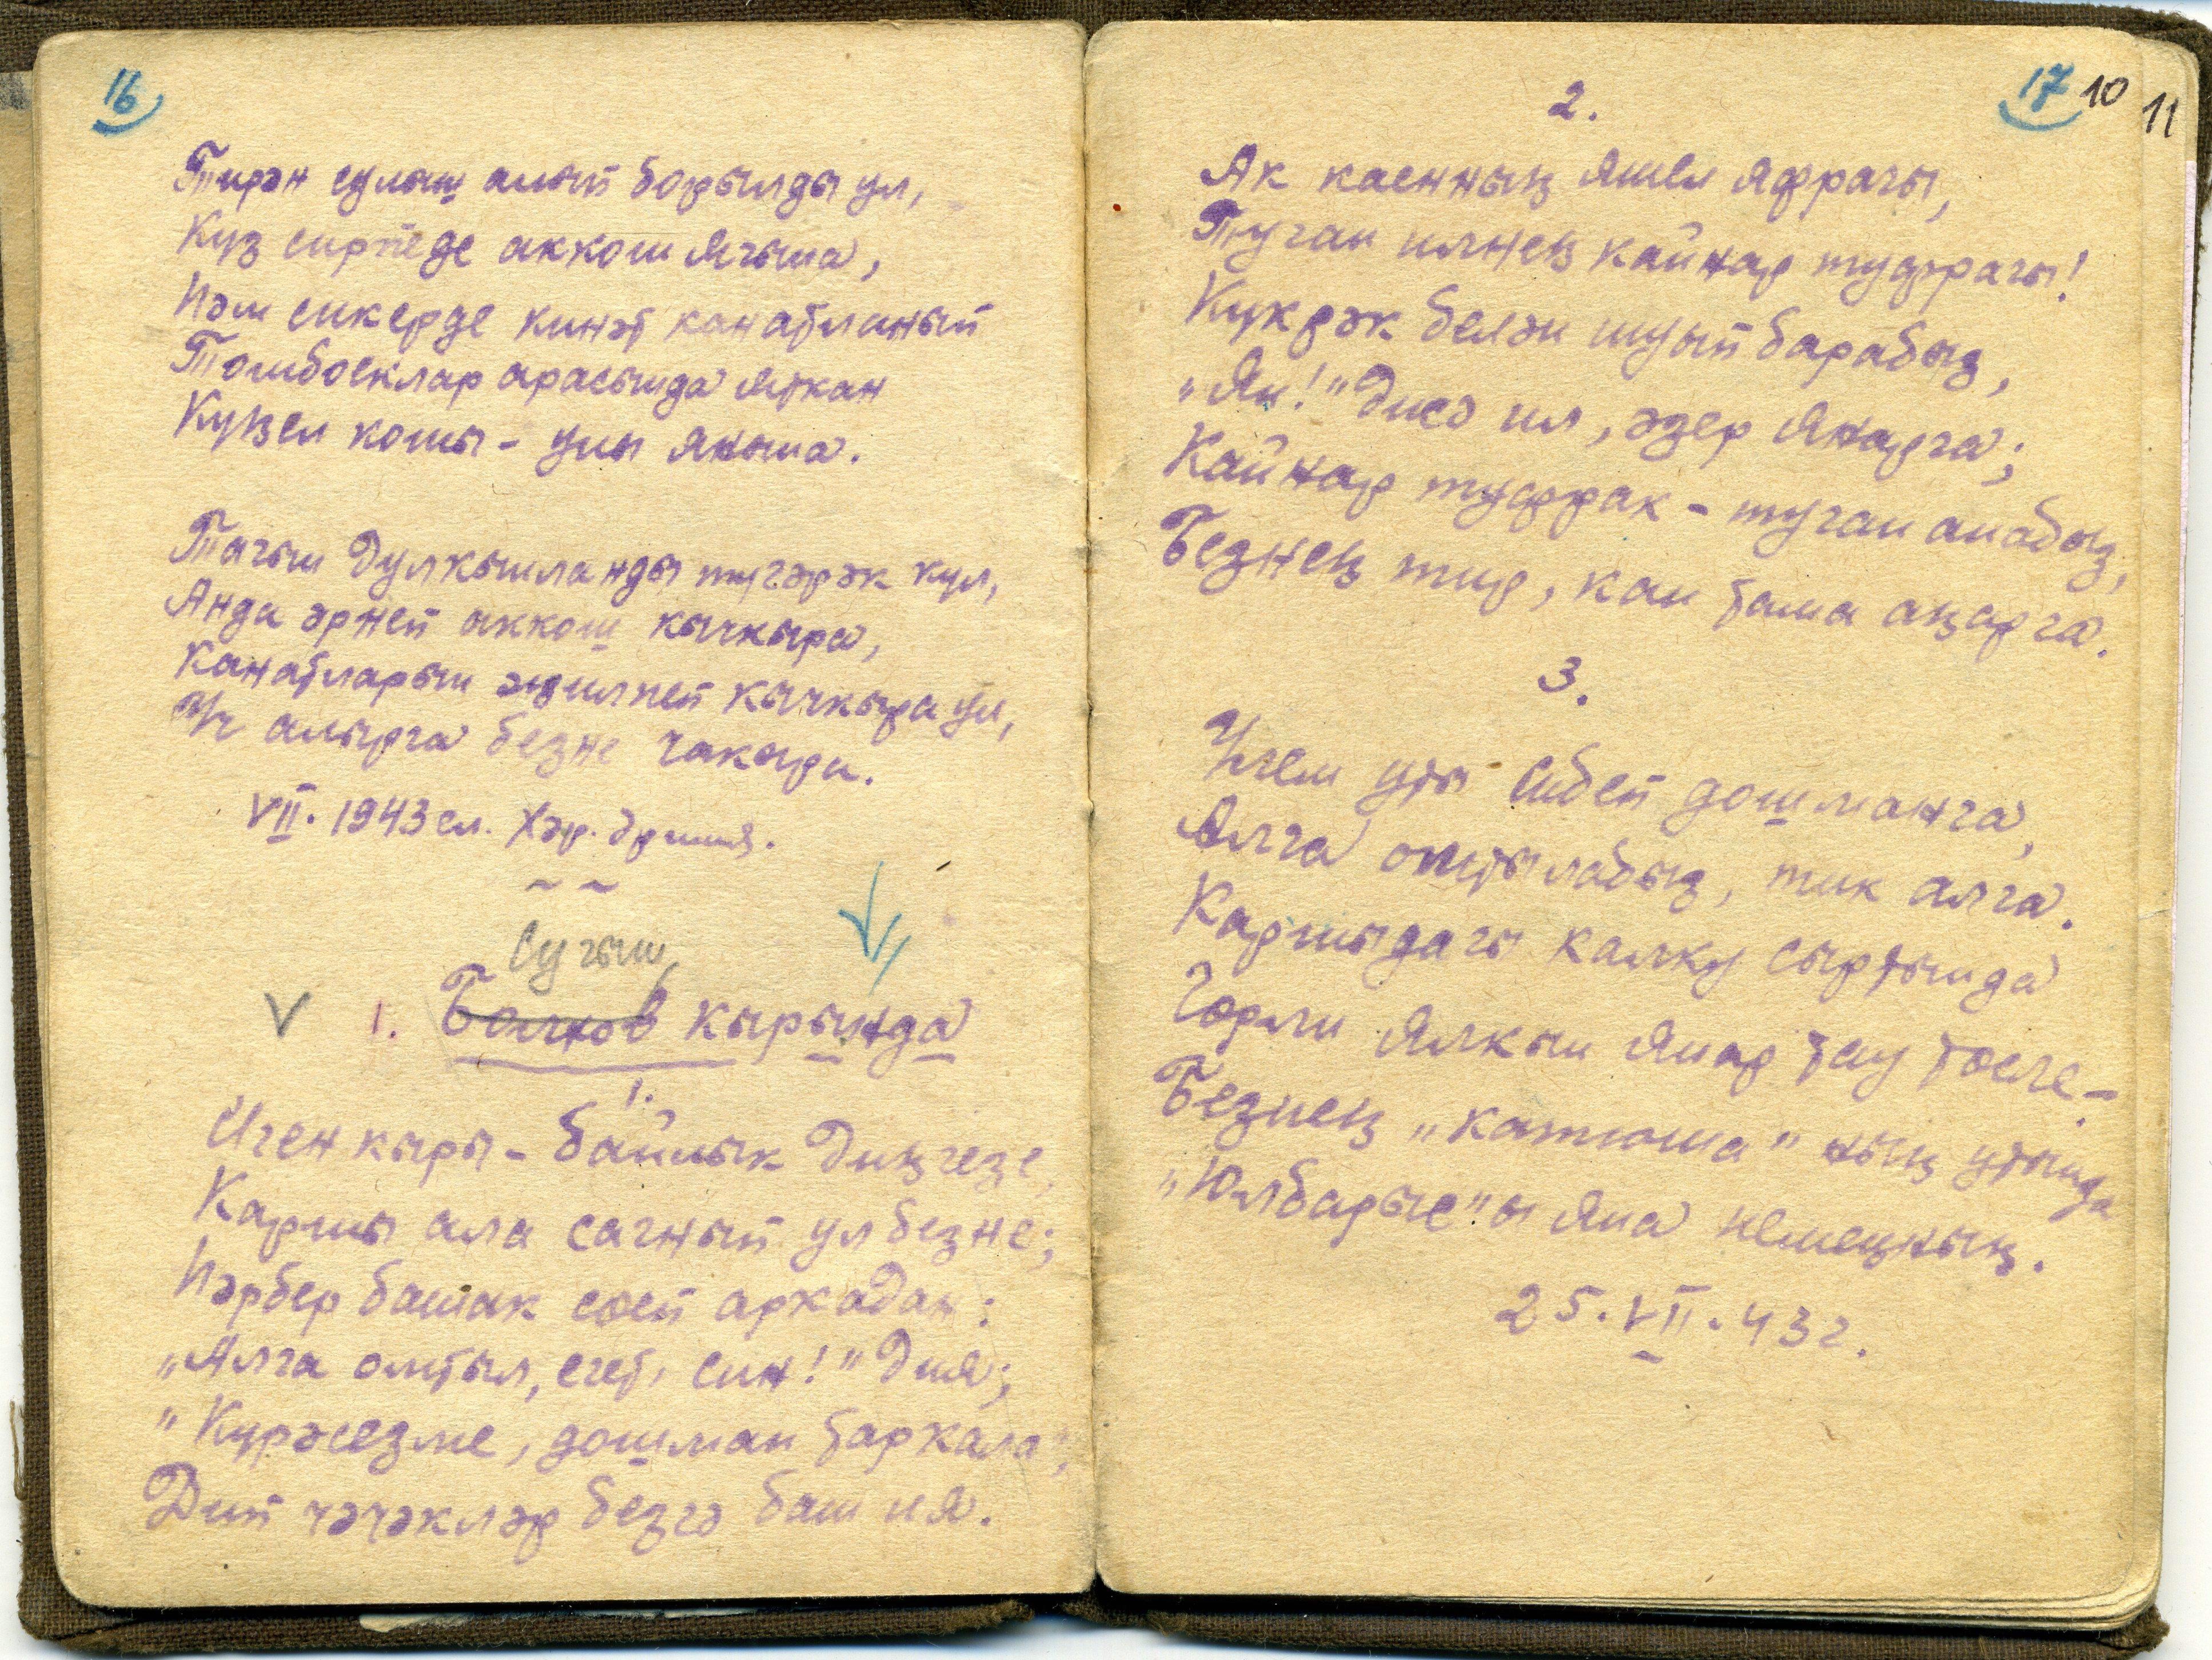 16
Тирән сулыш алып борылды ул,
Күз сирпеде аккош ягына,
Һәм сикерде кинәт канатланып
Томбоеклар арасында яткан
Күңел кошы - улы янына.
Тагын дулкынланды түгәрәк күл,
Анда әрнеп аккош кычкыра,
Канатларын җилпеп кычкыра ул,
Үч алырга безне чакыра.
VII. 1943 ел. Хәр. Армия.
Сугыш
1. Болхов кырында
1.
Иген кыры - байлык диңгезе,
Каршы ала сагнып ул безне;
Һәрбер башак сөеп аркадан:
„Алга омтыл, егет, син!" дия;
„Күрәсезме, дошман таркала",
Дип чәчәкләр безгә баш ия.
17 10
11
2.
Ак каенның яшел яфрагы,
Туган илнең кайнар туфрагы!
Күкрәк белән шуып барабыз,
„Ян!" дисә ил, әзер янарга;
Кайнар туфрак - туган анабыз,
Безнең тир, кан тама аңарга.
3.
Үлем уты сибеп дошманга,
Алга омтылабыз, тик алга.
Каршыдагы калку сыртында
Гөрли ялкын янар тау төсле -
Безнең „катюша" ның утында
„Юлбарыс"ы яна немецның.
25. VII. 43 г.